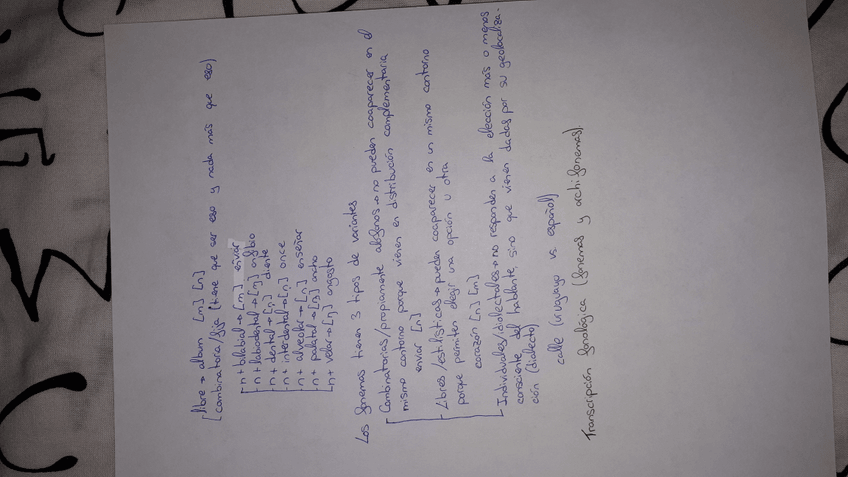 libre → album [m] [n]
combinatoria/fija (tiene que ser eso y nada más que eso)
n + bilabial → [m] enviar
n + labiodental → [ɱ] anfibio
n + dental → [n̪] diente
n + interdental → [n̟] once
n + alveolar → [n] enseñar
n + palatal → [ɲ] ancho
n + velar → [ŋ] angosto
Los fonemas tienen 3 tipos de variantes
Combinatorias/propiamente alófonos → no pueden coaparecer en el
mismo contorno porque vienen en distribución complementaria
enviar [n]
Libres/estilísticas → pueden coaparecer en un mismo contorno
porque permiten elegir una opción u otra
corazón [n] [m]
Individuales/dialectales → no responden a la elección más o menos
consciente del hablante, sino que vienen dadas por su geolocaliza-
ción (dialecto)
calle (uruguayo vs. español)
Transcripción fonológica (fonemas y archifonemas).